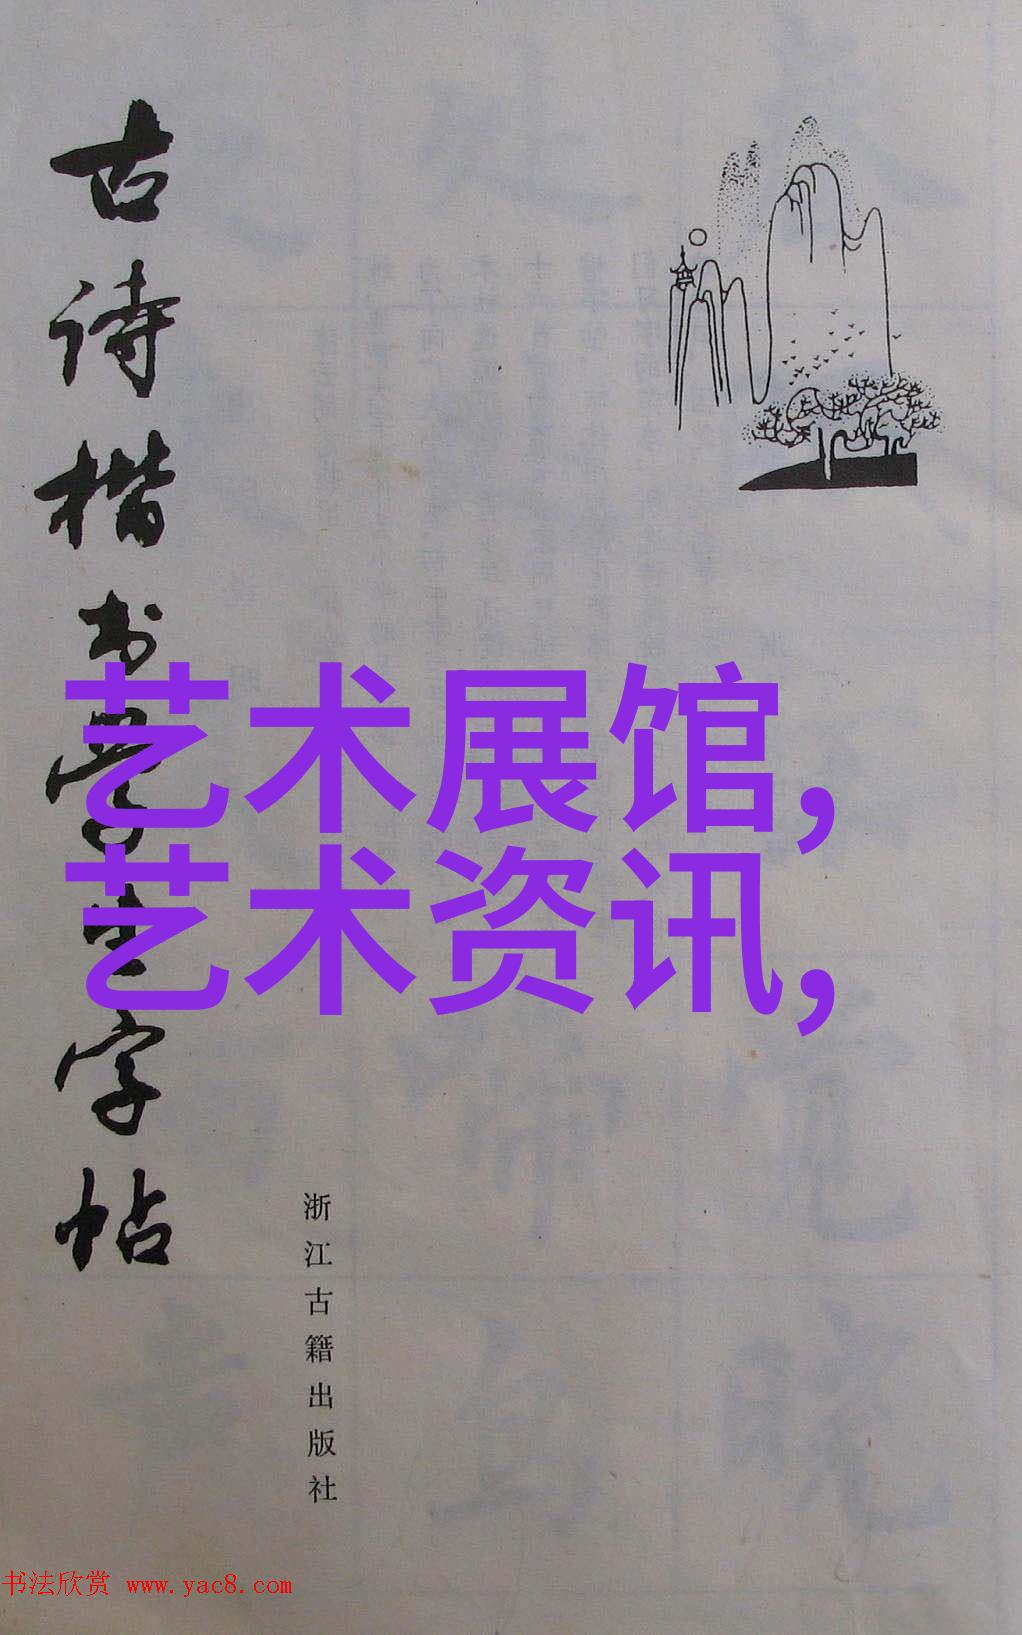 古诗楷书学生字帖
艺术展馆,
艺术资讯,
浙江古籍出版社
书法欣赏 www.yac8.com